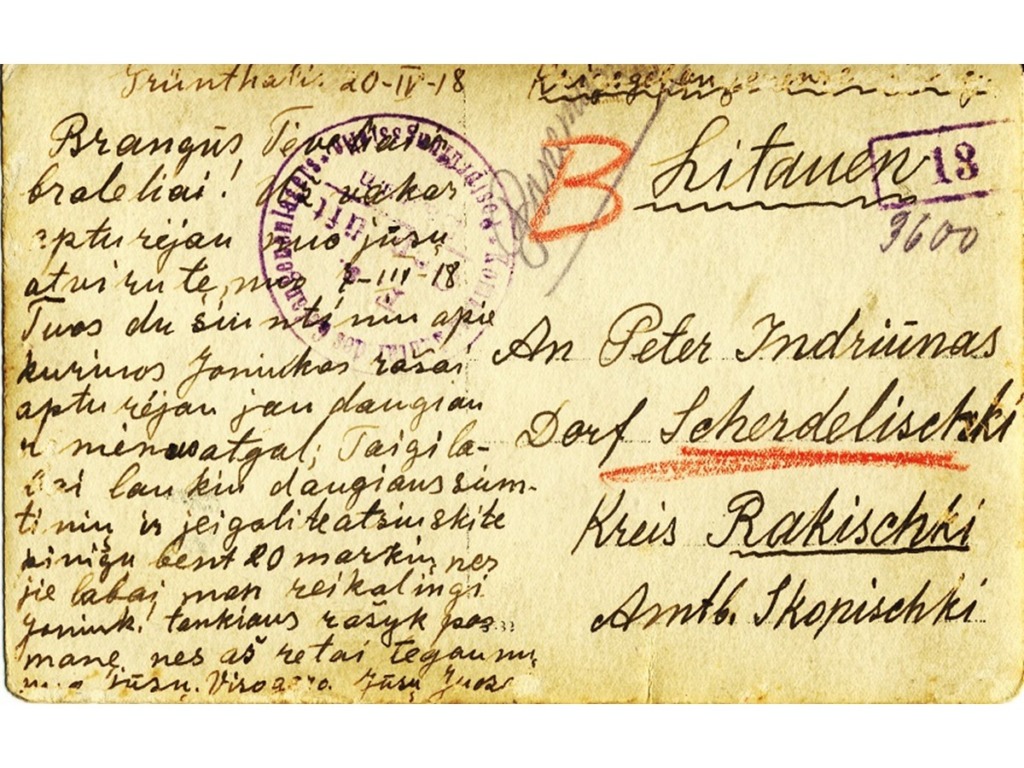 Grünthal. 20-IV-18
Brangūs Tevelai ir
braleliai! vakar
apturėjau nuo jūsų
atvirutę nuo 7-III-18
Tuos du siuntiniu apie
kuriuos Joniukas rašai
apturėjau jau daugiau
mėnuo atgal; Taigi la-
bai laukiu daugiaus siun-
tinių ir jeigalite atsiuskite
pinigų bent 20 markių nes
jie labai man reikalingi
Joniuk! tankiaus rašyk pas
mane, nes aš retai tegaunu
nuo jūsų. Viso gero. Jūsų Juoz
Litauen
B
13
9600
An Peter Indriūnas
Dorf Scherdelischki
Kreis Rakischki
Amtb. Skopischki